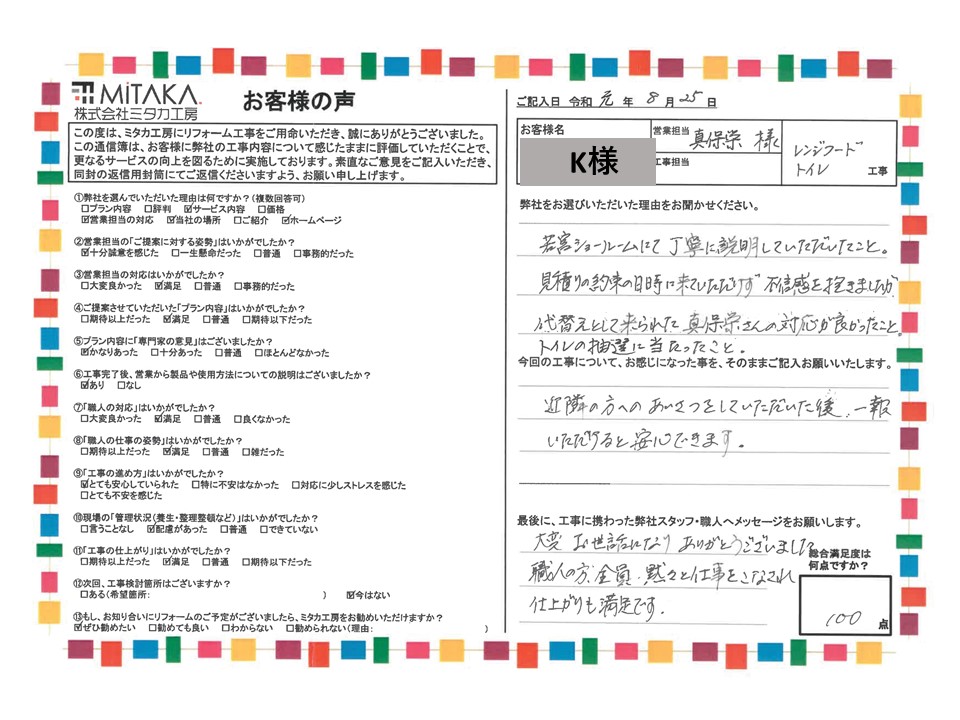 MiTAKA
株式会社ミタカ工房
お客様の声
この度は、ミタカ工房にリフォーム工事をご用命いただき、誠にありがとうございました。
この通信簿は、お客様に弊社の工事内容について感じたままに評価していただくことで、
更なるサービスの向上を図るために実施しております。素直なご意見をご記入いただき、
同封の返信用封筒にてご返信くださいますよう、お願い申し上げます。
①弊社を選んでいただいた理由は何ですか?(複数回答可)
□プラン内容 □評判 ☑サービス内容 □価格
☑営業担当の対応 ☑当社の場所 □ご紹介 ☑ホームページ
②営業担当の「ご提案に対する姿勢」はいかがでしたか?
☑十分誠意を感じた □一生懸命だった □普通 □事務的だった
③営業担当の対応はいかがでしたか?
□大変良かった ☑満足 □普通 □事務的だった
④ご提案させていただいた「プラン内容」はいかがでしたか?
□期待以上だった ☑満足 □普通 □期待以下だった
⑤プラン内容に「専門家の意見」はございましたか?
☑かなりあった □十分あった □普通 □ほとんどなかった
⑥工事完了後、営業から製品や使用方法についての説明はございましたか?
☑あり □なし
⑦「職人の対応」はいかがでしたか?
□大変良かった ☑満足 □普通 □良くなかった
⑧「職人の仕事の姿勢」はいかがでしたか?
□期待以上だった ☑満足 □普通 □雑だった
⑨「工事の進め方」はいかがでしたか?
☑とても安心していられた □特に不安はなかった □対応に少しストレスを感じた
□とても不安を感じた
⑩現場の「管理状況(養生・整理整頓など)」はいかがでしたか?
□言うことなし ☑配慮があった □普通 □できていない
⑪「工事の仕上がり」はいかがでしたか?
□期待以上だった ☑満足 □普通 □期待以下だった
⑫次回、工事検討箇所はございますか?
□ある(希望箇所: ) ☑今はない
⑬もし、お知り合いにリフォームのご予定がございましたら、ミタカ工房をお勧めいただけますか?
☑ぜひ勧めたい □勧めても良い □わからない □勧められない(理由: )
ご記入日 令和 元 年 8 月 25 日
お客様名
K様
営業担当 真保栄 様
工事担当
レンジフード
トイレ 工事
弊社をお選びいただいた理由をお聞かせください。
若宮ショールームにて丁寧に説明していただいたこと。
見積りの約束の日時に来ていただけず 不信感を抱きましたが
代替えとして来られた真保栄さんの対応が良かったこと。
トイレの抽選に当たったこと。
今回の工事について、お感じになった事を、そのままご記入お願いいたします。
近隣の方へのあいさつをしていただいた後、一報
いただけると安心できます。
最後に、工事に携わった弊社スタッフ・職人へメッセージをお願いします。
大変お世話になりありがとうございました
職人の方、全員、黙々と仕事をこなされ
仕上がりも満足です。
総合満足度は
何点ですか?
100 点